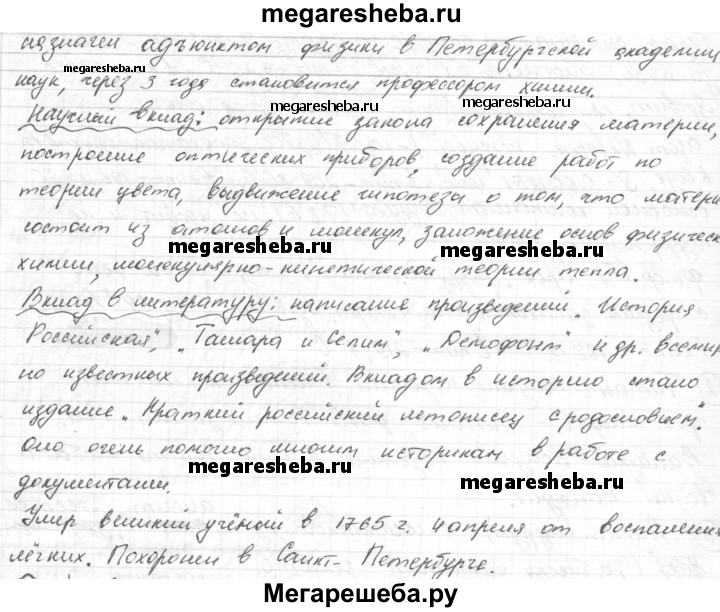 megaresheba.ru
назначен адъюнктом физики в Петербургской академии
megaresheba.ru
наук, через 3 года становится профессором химии.
megaresheba.ru megaresheba.ru
Научный вклад: открытие закона сохранения материи,
построение оптических приборов, создание работ по
теории цвета, выдвижение гипотезы о том, что матери
состоит из атомов и молекул, заложение основ физическ
megaresheba.ru megaresheba.ru
химии, молекулярно-кинетической теории тепла.
Вклад в литературу: написание произведений „История
Российская", „Тамара и Селим", „Демофонт" и др. всемир
но известных произведений. Вкладом в историю стало
издание „Краткий российский летописец с родословием".
Оно очень помогло многим историкам в работе с
megaresheba.ru megaresheba.ru
документами.
Умер великий учёный в 1765 г. 4 апреля от воспаления
лёгких. Похоронен в Санкт-Петербурге.
Мегарешеба.ру